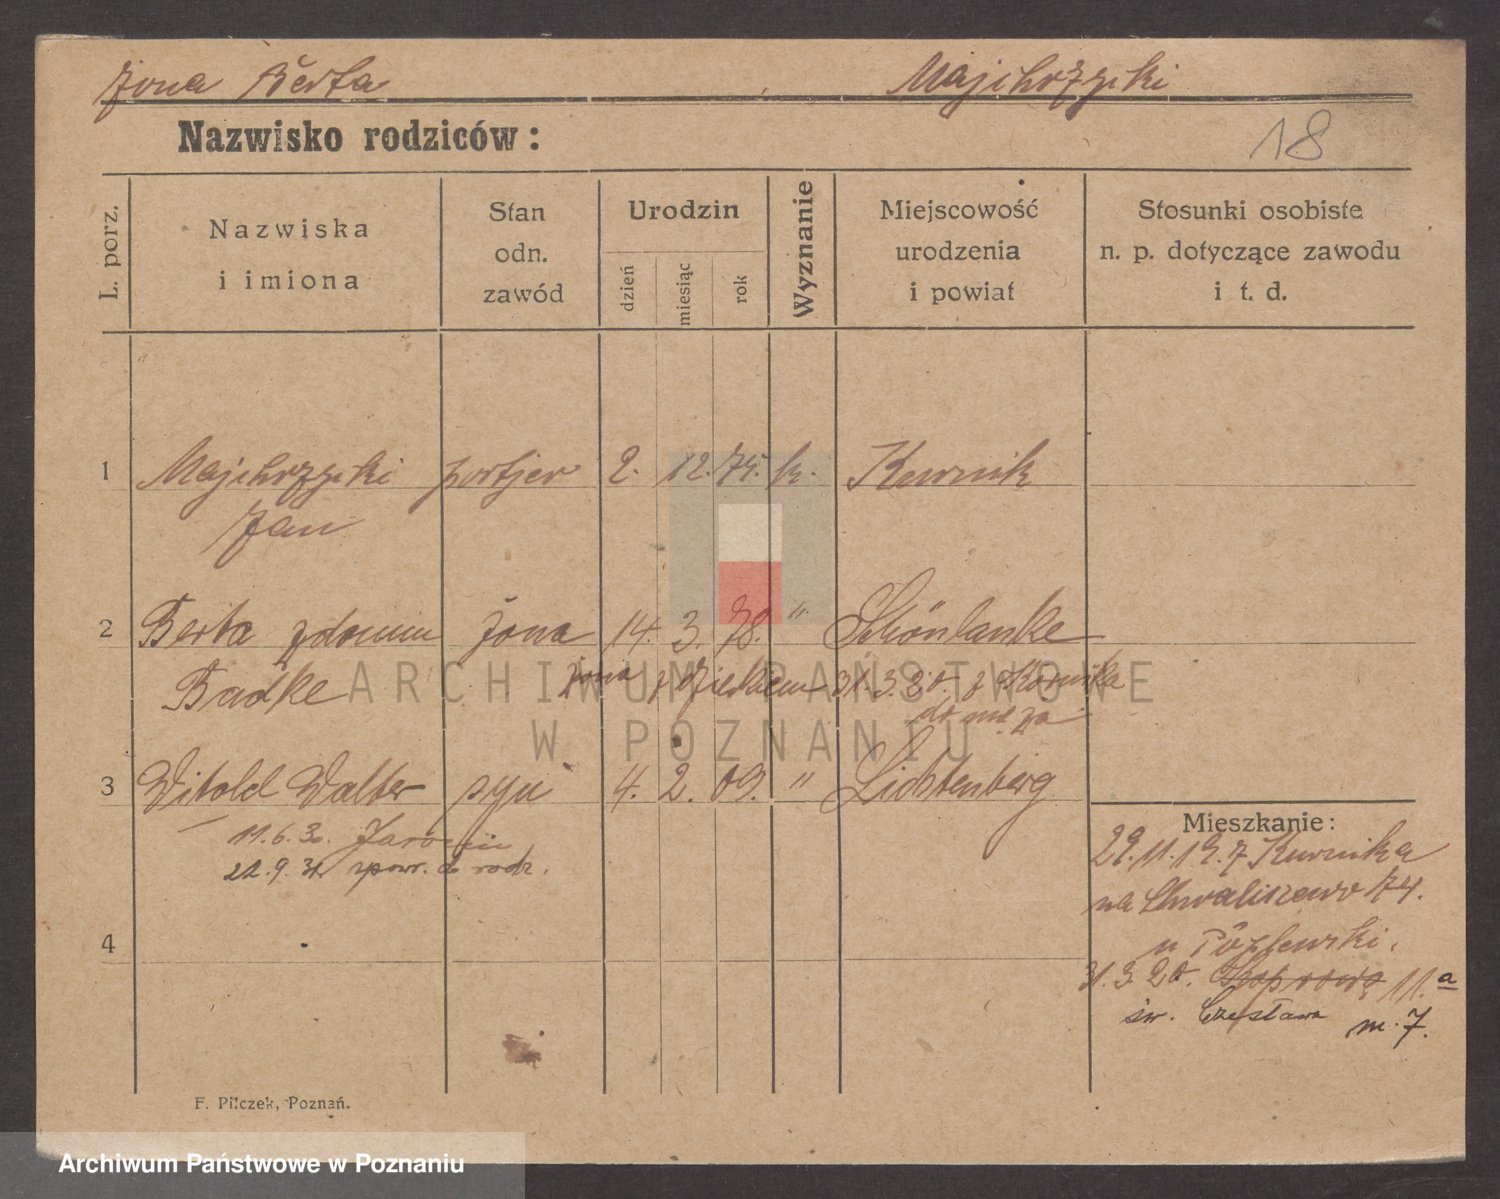 żona Berta Majchrzycki
Nazwisko rodziców:
18
L. porz.
Nazwiska
i imiona
Stan
odn.
zawód
Urodzin
dzień
miesiąc
rok
Wyznanie
Miejscowość
urodzenia
i powiat
Stosunki osobiste
n. p. dotyczące zawodu
i t. d.
1 Majchrzycki portjer 2. 12. 75. k. Kurnik
Jan
2 Berta z domu żona 14. 3. 78. " Schönlanke
Badke żona z dzieckiem 31.3.20. z Kórnika
do męża
ARCHIWUM PAŃSTWOWE
W POZNANIU
3 Witold Walter syn 4. 2. 09. " Lichtenberg
11.6.30. Jarocin
22.9.31 spowr. do rodz.
4
Mieszkanie:
29.11.19. z Kurnika
na Chwaliszewo 74.
u
31.3.20. 11.a
św. Czesława m. 7.
F. Pilczek, Poznań.
Archiwum Państwowe w Poznaniu